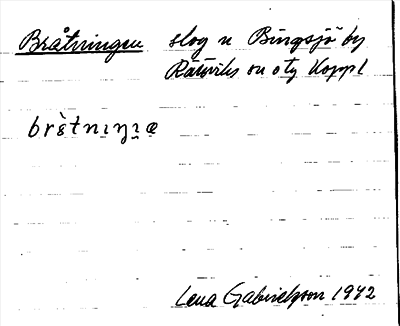 Bråtningen slog n Bingsjö by
Rättviks sn o tg Kopp l
brὲtnıŋıæ
Lena Gabrielsson 1972